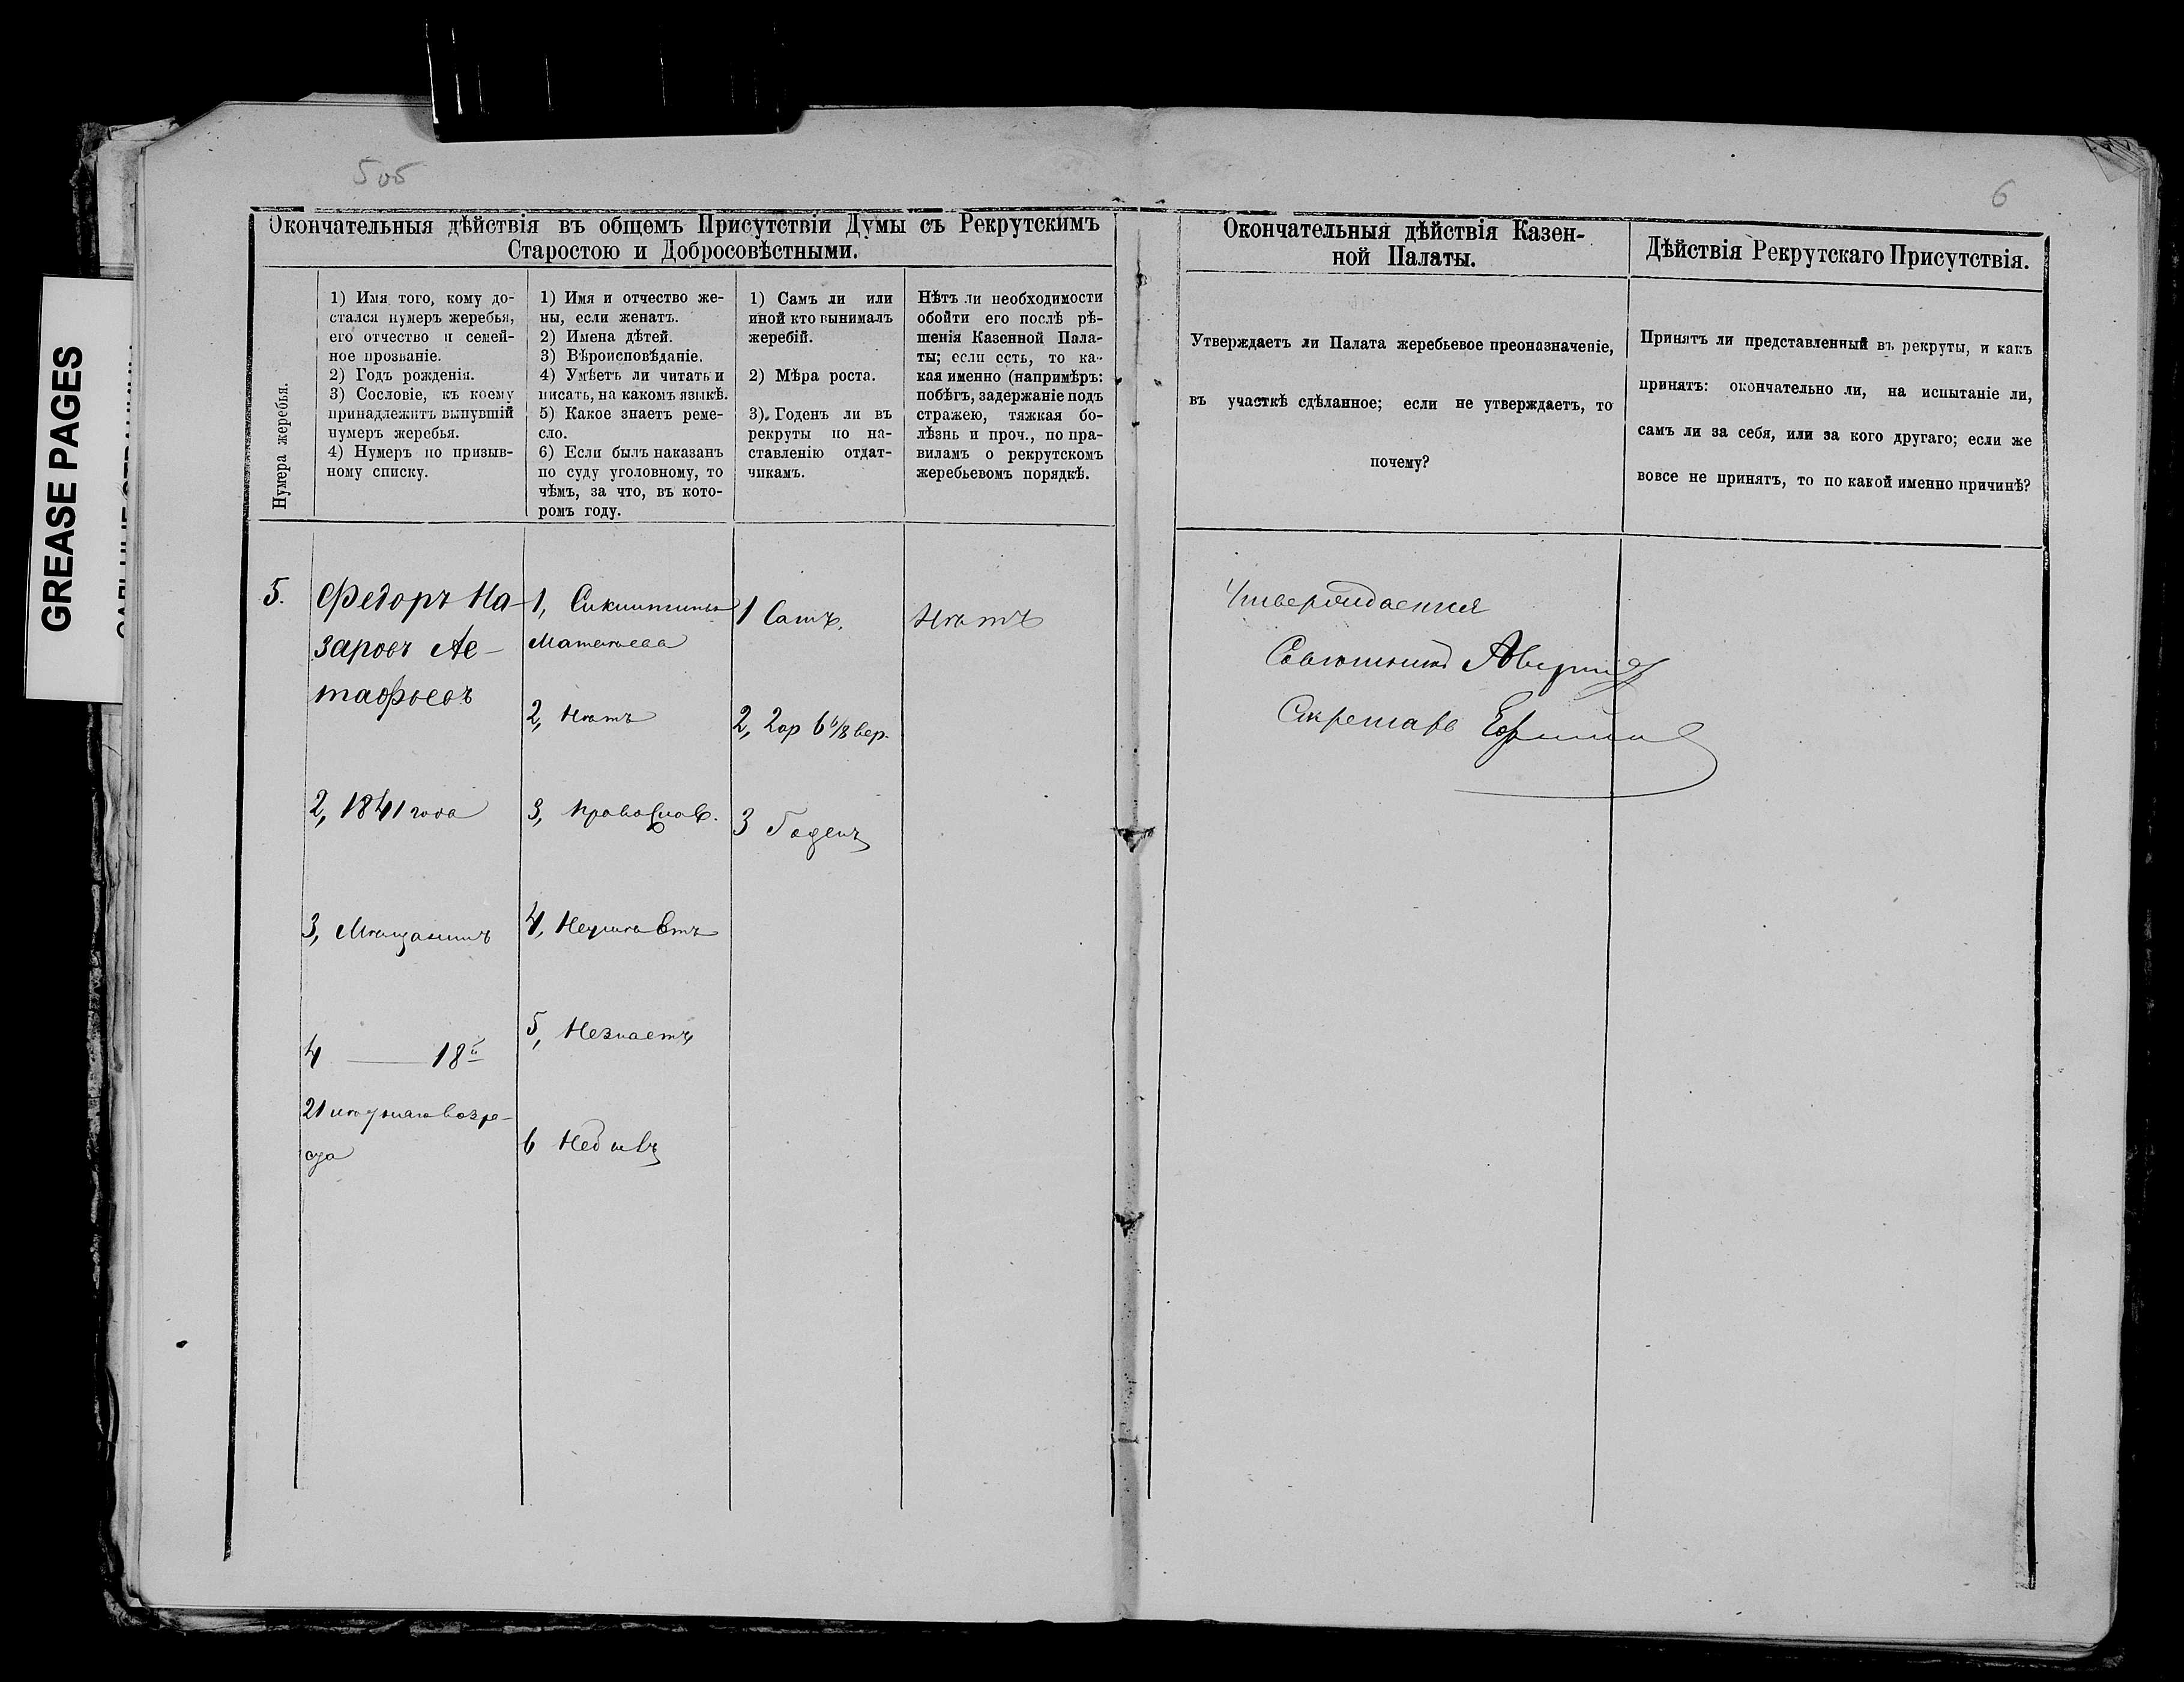 GREASE PAGES
505
6
Окончательныя дѣйствія въ общемъ Присутствіи Думы съ Рекрутскимъ
Старостою и Добросовѣстными.
Нумера жеребья.
1) Имя того, кому до-
стался нумеръ жеребья,
его отчество и семей-
ное прозваніе.
2) Годъ рожденія.
3) Сословіе, къ коему
принадлежитъ вынувшій
нумеръ жеребья.
4) Нумеръ по призыв-
ному списку.
1) Имя и отчество же-
ны, если женатъ.
2) Имена дѣтей.
3) Вѣроисповѣданіе.
4) Умѣетъ ли читать и
писать, на какомъ языкѣ.
5) Какое знаетъ реме-
сло.
6) Если былъ наказанъ
по суду уголовному, то
чѣмъ, за что, въ кото-
ромъ году.
1) Самъ ли или
иной кто вынималъ
жеребій.
2) Мѣра роста.
3) Годенъ ли въ
рекруты по на-
ставленію отдат-
чикамъ.
Нѣтъ ли необходимости
обойти его послѣ рѣ-
шенія Казенной Пала-
ты; если есть, то ка-
кая именно (напримѣръ:
побѣгъ, задержаніе подъ
стражею, тяжкая бо-
лѣзнь и проч., по пра-
виламъ о рекрутскомъ
жеребьевомъ порядкѣ.
Окончательныя дѣйствія Казен-
ной Палаты.
Утверждаетъ ли Палата жеребьевое преоназначеніе,
въ участкѣ сдѣланное; если не утверждаетъ, то
почему?
Дѣйствія Рекрутскаго Присутствія.
Принятъ ли представленный въ рекруты, и какъ
принятъ: окончательно ли, на испытаніе ли,
самъ ли за себя, или за кого другаго; если же
вовсе не принятъ, то по какой именно причинѣ?
5.
Федоръ На-
заровъ Ас-
тафьевъ
2, 1841 года
3, Мѣщанинъ
4 — 18й
21 лѣтняго возра-
ста
1,
Матвѣева
2, Нѣтъ
3, Православ.
4, Неумѣетъ
5, Незнаетъ
6 Небылъ
1 Самъ.
2, 2 ар 6 6/8 вер.
3 Годенъ
Нѣтъ
Утверждается
Совѣтникъ
Секретарь